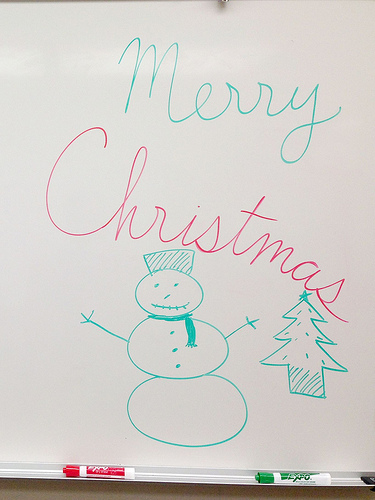 Merry
Christmas
EXPO
EXPO